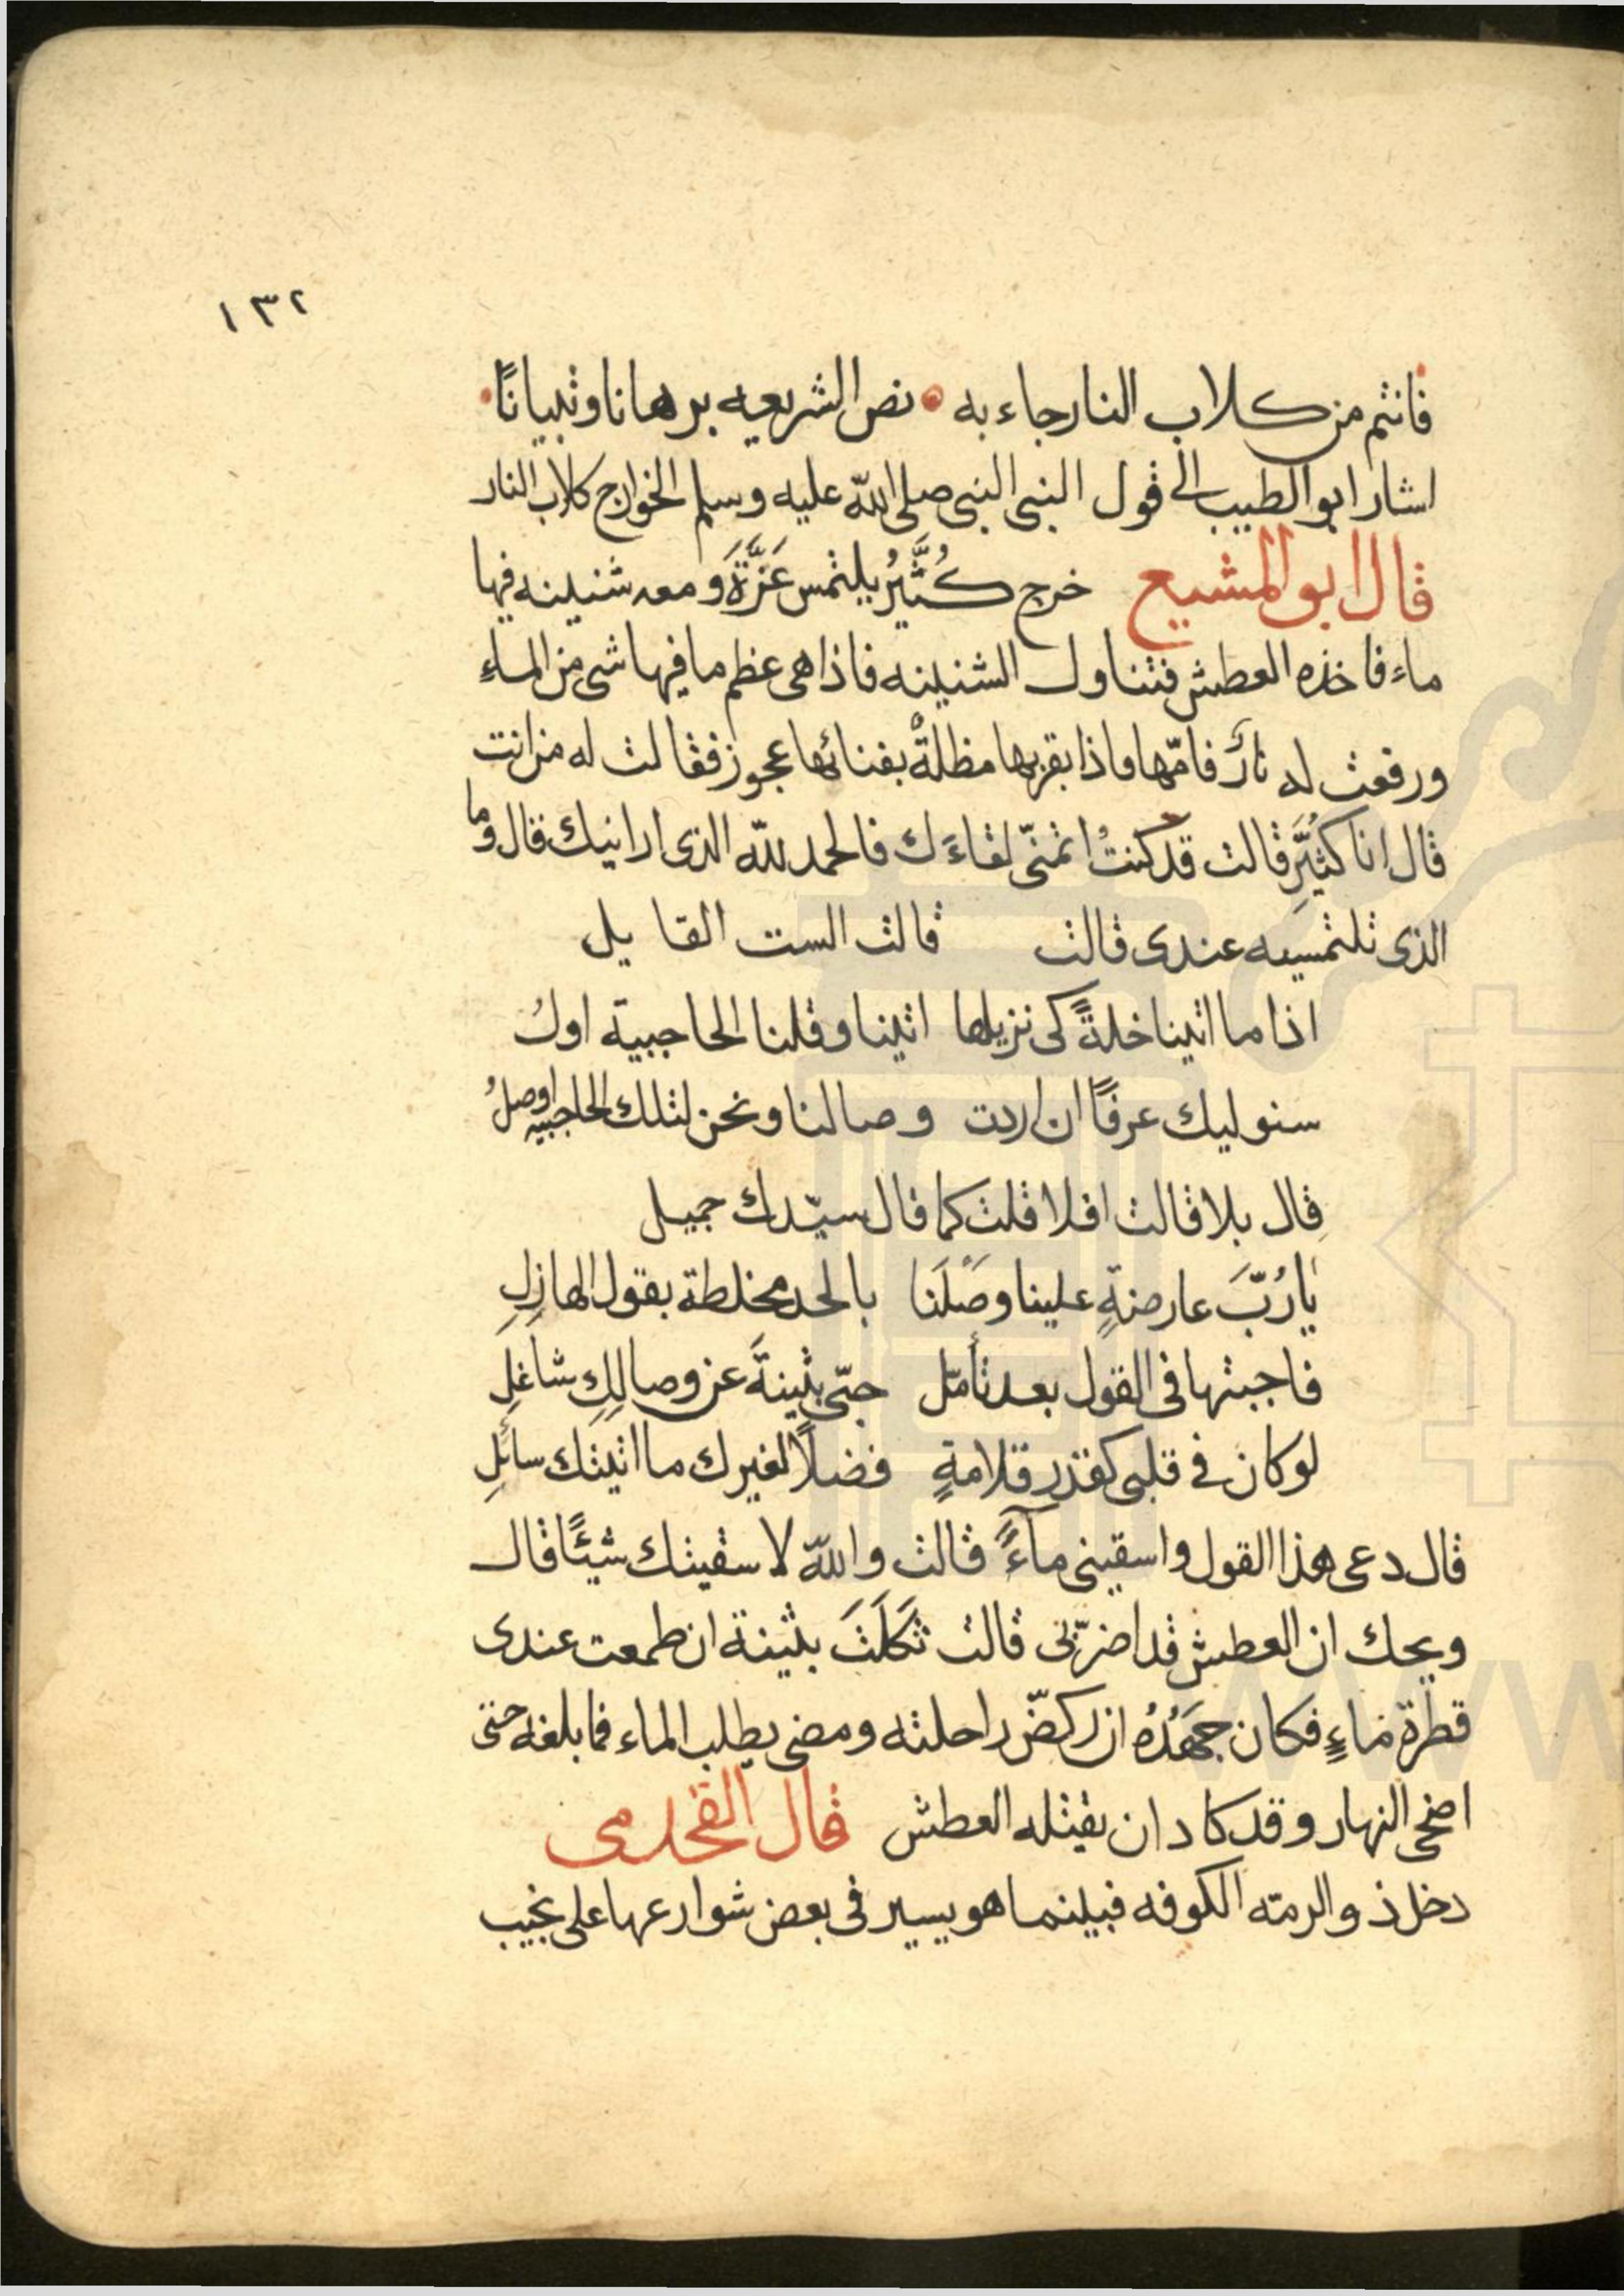 ١٣٢
فانتم من كلاب النار جاء به نص الشريعه برهانا وتبيانًا
اشار ابو الطيب الى قول النبى النبى صلى الله عليه وسلم الخوارج كلاب النار
قال ابو المشيع خرج كُثَيِّرُ يلتمس عَزَّةَ ومعه شنينه فيها
ماء فاخذه العطش فتناول الشنينه فاذا هى عظم ما فيها شى من الماءِ
ورفعت له نارٌ فامّها فاذا بقربها مظلةٌ بفنائها عجوز فقالت له من انت
قال انا كُثيِّر قالت قد كنتُ اتمنّى لقاءَك فالحمد لله الذى ارانيك قال وما
الذى تلتمسيه عندى قالت قالت الست القايل
اذا ما اتينا خلةً كى نزيلها اتينا وقلنا الحاجبية اولُ
سنوليك عرفًا ان اردت وصالنا ونحن لتلك الحاجبيه اوصلُ
قال بلا قالت افلا قلت كما قال سيّدك جميل
يا رُبَّ عارضةٍ علينا وَصْلَنا بالحد مخلطة بقول الهازلِ
فاجبتها فى القول بعد تأمّل حبّى بثينةَ عن وصالِكِ شاغلِ
لو كان فى قلبى كقدر قلامةٍ فضلًا لغيرك ما اتيتك سائلِ
قال دعى هذا القول واسقينى مآءً قالت والله لا سقيتك شيئًا قال
ويحك ان العطش قد اضرّبى قالت ثَكَلَتَ بثينة ان طمعت عندى
قطرة ماءٍ فكان جَهَدُهُ ان ركضّ راحلته ومضى يطلب الماء فما بلغه حتى
اضحى النهار وقد كاد ان يقتله العطش قال القحذمى
دخل ذو الرمّه الكوفه فبينما هو يسير فى بعض شوارعها على نجيب